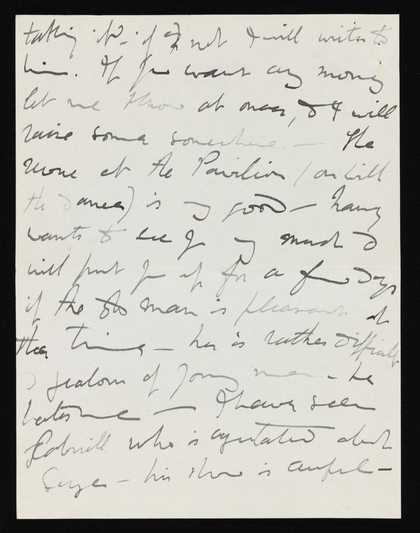 taking it - if not I will write to
him. If you want any money
let me know at once, & I will
raise some somewhere - The
at the Pavilion (on will
the dance) is v. good - Harry
wants to see you very much &
will put you up for a few days
if the old man is pleasant at
the time - he is rather difficult
& jealous of young men - he
hates me - I have seen
Gabrielle who is agitated about
- his show is awful -